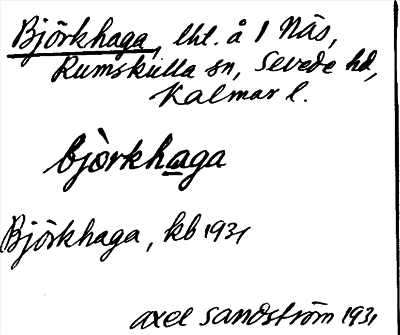 Björkhaga, lht. å 1 Näs,
Rumskulla sn, Sevede hd,
Kalmar l.
bjòrkhaga
Björkhaga, kb 1931
axel sandström 1931